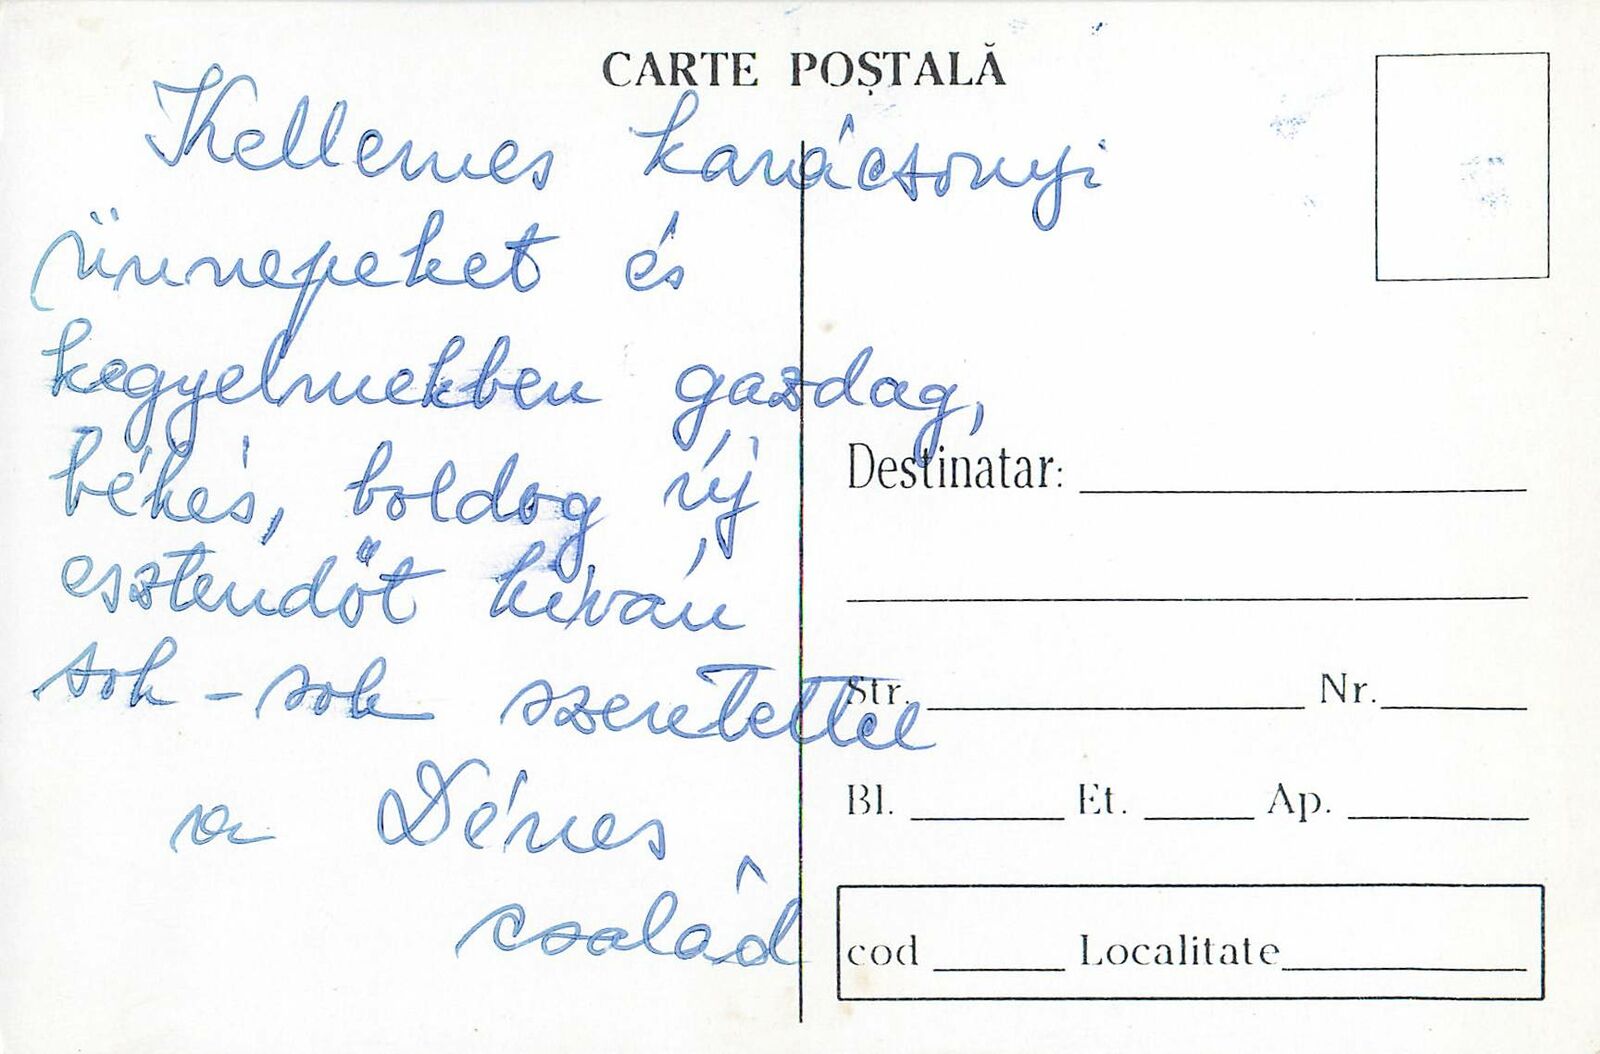 CARTE POȘTALĂ
Kellemes karácsonyi
ünnepeket és
kegyelmekben gazdag,
békés, boldog új
esztendőt kíván
sok-sok szeretettel
a Dénes
család
Destinatar:
Str. Nr.
Bl. Et. Ap.
cod Localitate